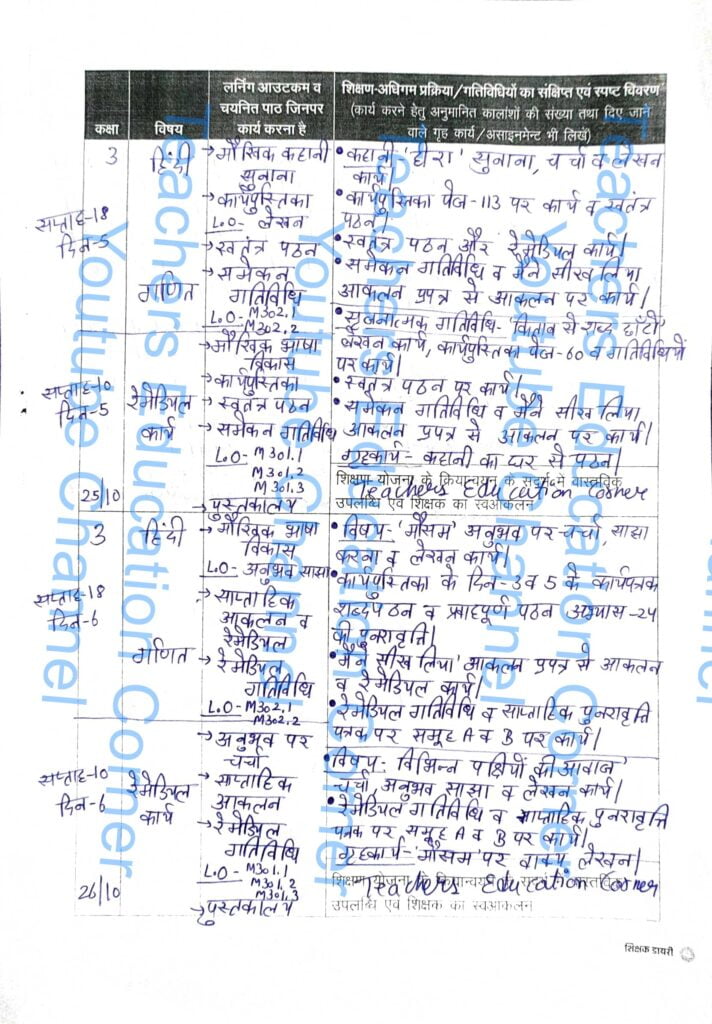 कक्षा
विषय
लर्निंग आउटकम व
चयनित पाठ जिनपर
कार्य करना है
शिक्षण-अधिगम प्रक्रिया/गतिविधियों का संक्षिप्त एवं स्पष्ट विवरण
(कार्य करने हेतु अनुमानित कालांशों की संख्या तथा दिए जाने
वाले गृह कार्य/असाइनमेन्ट भी लिखें)
3
सप्ताह-18
दिन-5
हिंदी
→मौखिक कहानी
सुनाना
→कार्यपुस्तिका
L.O- लेखन
→स्वतंत्र पठन
•कहानी 'हीरा' सुनाना, चर्चा व लेखन
कार्य
•कार्यपुस्तिका पेज-113 पर कार्य व स्वतंत्र
पठन।
•स्वतंत्र पठन और रेमेडियल कार्य।
गणित
→समेकन
गतिविधि
L.O- M302.1
M302.2
•समेकन गतिविधि व मैने सीख लिया
आकलन प्रपत्र से आकलन पर कार्य।
सप्ताह-10
दिन-5
रेमेडियल
कार्य
→मौखिक भाषा
विकास
→कार्यपुस्तिका
→स्वतंत्र पठन
→समेकन गतिविधि
L.O- M301.1
M301.2
M301.3
→पुस्तकालय
•सृजनात्मक गतिविधि- 'किताब से शब्द छाँटो'
लेखन कार्य, कार्यपुस्तिका पेज-60 व गतिविधियों
पर कार्य।
•स्वतंत्र पठन पर कार्य।
•समेकन गतिविधि व मैने सीख लिया
आकलन प्रपत्र से आकलन पर कार्य।
गृहकार्य- कहानी का घर से पठन।
शिक्षण योजना के क्रियान्वयन के सन्दर्भ में वास्तविक
Teachers Education Corner
उपलब्धि एवं शिक्षक का स्वआकलन
25/10
3
सप्ताह-18
दिन-6
हिंदी
→मौखिक भाषा
विकास
L.O- अनुभव साझा
→साप्ताहिक
आकलन व
रेमेडियल
•विषय-'मौसम' अनुभव पर चर्चा, साझा
करना व लेखन कार्य।
•कार्यपुस्तिका के दिन-3 व 5 के कार्यपत्रक
शब्दपठन व प्रवाहपूर्ण पठन अभ्यास-24
की पुनरावृत्ति।
गणित
→रेमेडियल
गतिविधि
L.O- M302.1
M302.2
•'मैने सीख लिया' आकलन प्रपत्र से आकलन
व रेमेडियल कार्य।
•रेमेडियल गतिविधि व साप्ताहिक पुनरावृत्ति
पत्रक पर समूह A व B पर कार्य।
सप्ताह-10
दिन-6
रेमेडियल
कार्य
→अनुभव पर
चर्चा
→साप्ताहिक
आकलन
→रेमेडियल
गतिविधि
L.O- M301.1
M301.2
M301.3
→पुस्तकालय
•विषय- विभिन्न पक्षियों की आवाज'
चर्चा, अनुभव साझा व लेखन कार्य।
•रेमेडियल गतिविधि व साप्ताहिक पुनरावृत्ति
पत्रक पर समूह A व B पर कार्य।
गृहकार्य-'मौसम' पर वाक्य लेखन।
शिक्षण योजना
Teachers Education Corner
उपलब्धि एवं शिक्षक का स्वआकलन
26/10
शिक्षक डायरी
Teachers Education Corner
Youtube Channel
Teachers Education Corner
Youtube Channel